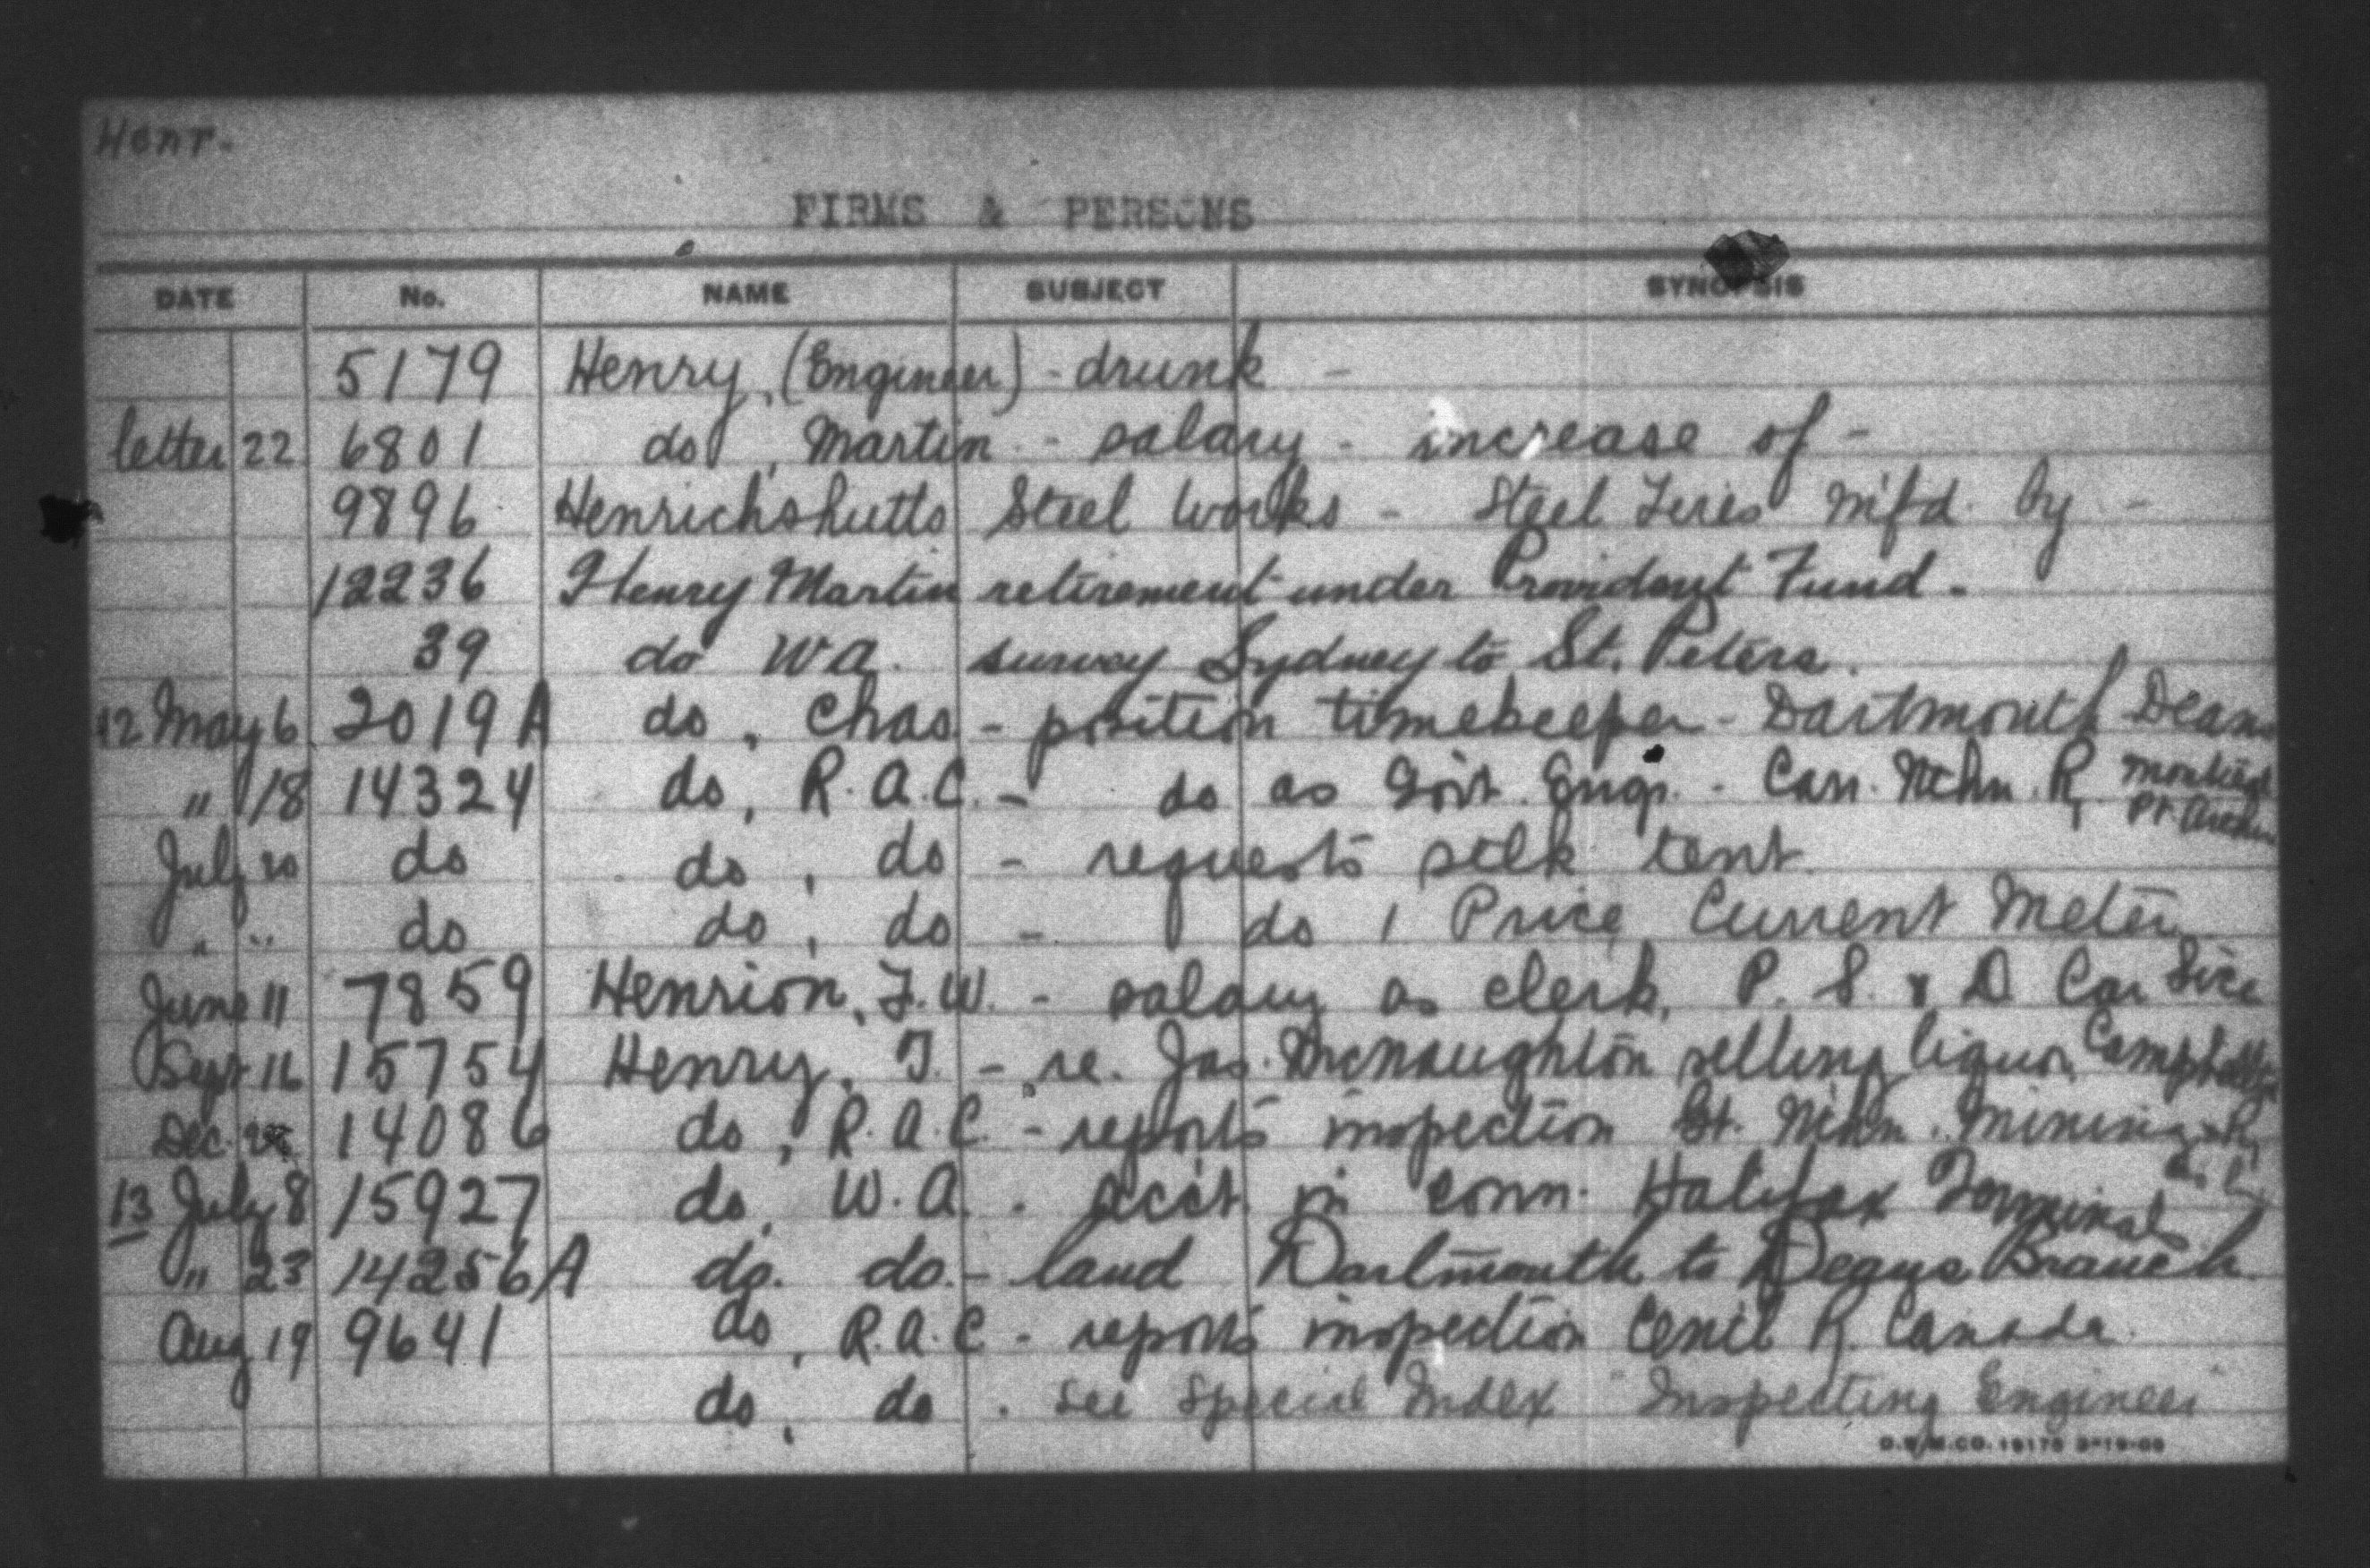 Henr.
FIRMS & PERSONS
DATE No. NAME SUBJECT SYNOPSIS
5179 Henry, (Engineer) - drunk -
letter 22 6801 do, Martin - salary - increase of -
9896 Henrichshutts Steel Works - Steel Tires mfd. by -
12236 Henry Martin retirement under Provident Fund.
39 do W A. survey Sydney to St. Peters.
12 May 6 2019 A do, Chas - position timekeeper - Dartmouth Deans
" 18 14324 do, R.A.C. - do as Govt. Engr. - Can. Nthn. R,
Pt. Arthur
July 20 do do, do - requests silk tent.
" " do do, do - do 1 Price Current Meter
June 11 7859 Henrion, F.W. - salary as clerk, P. S. & D Car
Sept 16 15754 Henry, T. - re. Jas. McNaughton selling liquor, Campbellton
Dec. 14086 do, R.A.C. - reports inspection Gt. Nthn. Mining & Ry
13 July 8 15927 do, W.A. - acct. in conn. Halifax Terminals
" 23 14256A do. do. - land Dartmouth to Deans Branch.
Aug 19 9641 do, R.A.C - reports inspection Centl R. Canada.
do, do. see Special Index "Inspecting Engineer"